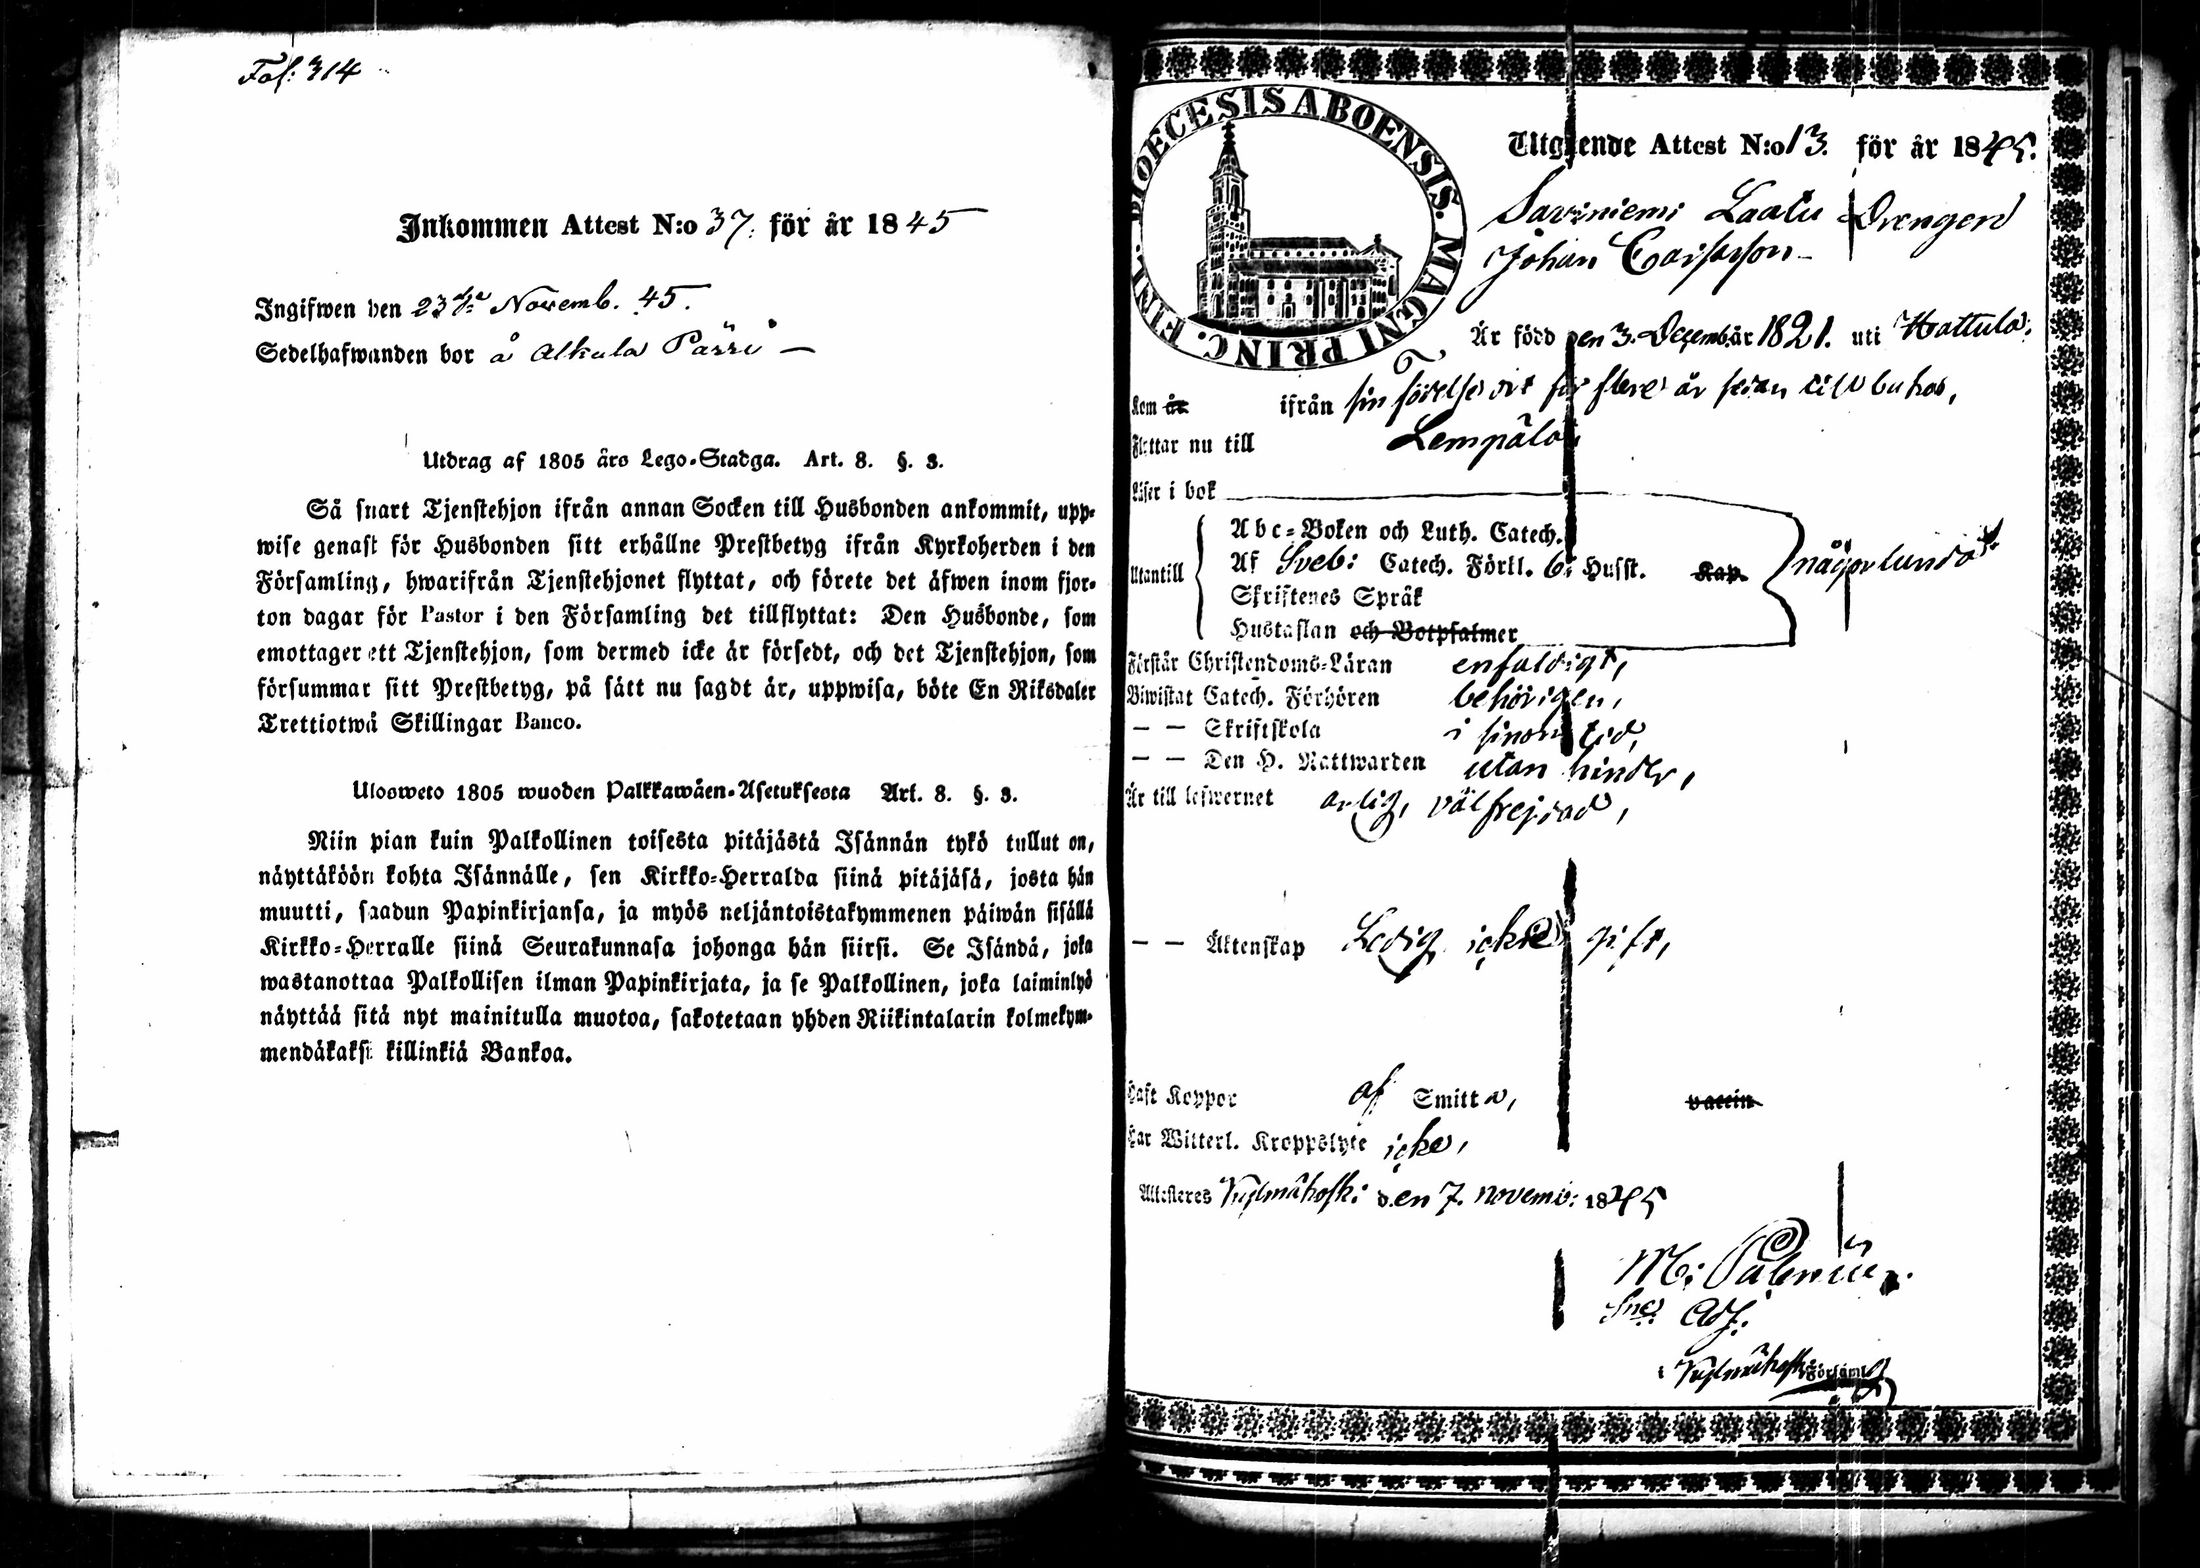 Fol: 314
Inkommen Attest N:o 37. för år 1845
Ingifwen den 23 Novemb. 45.
Sedelhafwanden bor å Alkula Pärri
Utdrag af 1805 års Lego-Stadga. Art. 8. §. 3.
Så snart Tjenstehjon ifrån annan Socken till Husbonden ankommit, upp-
wise genast för Husbonden sitt erhållne Prestbetyg ifrån Kyrkoherden i den
Församling, hwarifrån Tjenstehjonet flyttat, och förete det äfwen inom fjor-
ton dagar för Pastor i den Församling det tillflyttat: Den Husbonde, som
emottager ett Tjenstehjon, som dermed icke är försedt, och det Tjenstehjon, som
försummar sitt Prestbetyg, på sätt nu sagdt är, uppwisa, böte En Riksdaler
Trettiotwå Skillingar Banco.
Ulosweto 1805 wuoden Palkkawäen-Asetuksesta Art. 8. §. 3.
Niin pian kuin Palkollinen toisesta pitäjästä Isännän tykö tullut on,
näyttäköön kohta Isännälle, sen Kirkko-Herralda siinä pitäjäsä, josta hän
muutti, saadun Papinkirjansa, ja myös neljäntoistakymmenen päiwän sisällä
Kirkko-Herralle siinä Seurakunnasa johonga hän siirsi. Se Isändä, joka
wastanottaa Palkollisen ilman Papinkirjata, ja se Palkollinen, joka laiminlyö
näyttää sitä nyt mainitulla muotoa, sakotetaan yhden Riikintalarin kolmekym-
mendäkaksi killinkiä Bankoa.
DIOECESIS ABOENSIS. MAGNI PRINC. FINL.
Utgående Attest N:o 13. för år 1845.
Saviniemi Laatu Drengen
Johan Carlsson
Är född den 3. Decemb. år 1821. uti Hattula.
Kom år ifrån sin födelse ort för flere år sedan
Flyttar nu till Lempäla
Läser i bok
Utantill
Abc-Boken och Luth. Catech.
Af Sveb: Catech. Förkl. 6. Husst. Kap.
Skriftenes Språk
Hustaflan och Botpsalmer
någorlunda
Förstår Christendoms-Läran enfaldigt,
Biwistat Catech. Förhören behörigen,
— — Skriftskola i sinom tid,
— — Den H. Nattwarden utan hinder,
Är till lefwernet ärlig, välfrejdad,
— — Äktenskap Ledig icke gift,
Haft Koppor af Smitta, vaccin
Har Witterl. Kroppslyte icke,
Attesteres Vuglmåkoski den 7. novemb: 1845
M: Palmén.
Adj:
i Församl